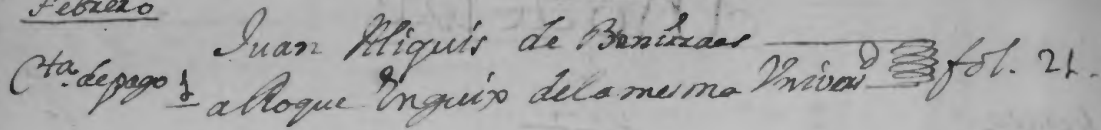 Febrero
Juan Miquis de Benimaes
Cta. de pago a Roque Enguix dela mesma Univerd fol. 21.